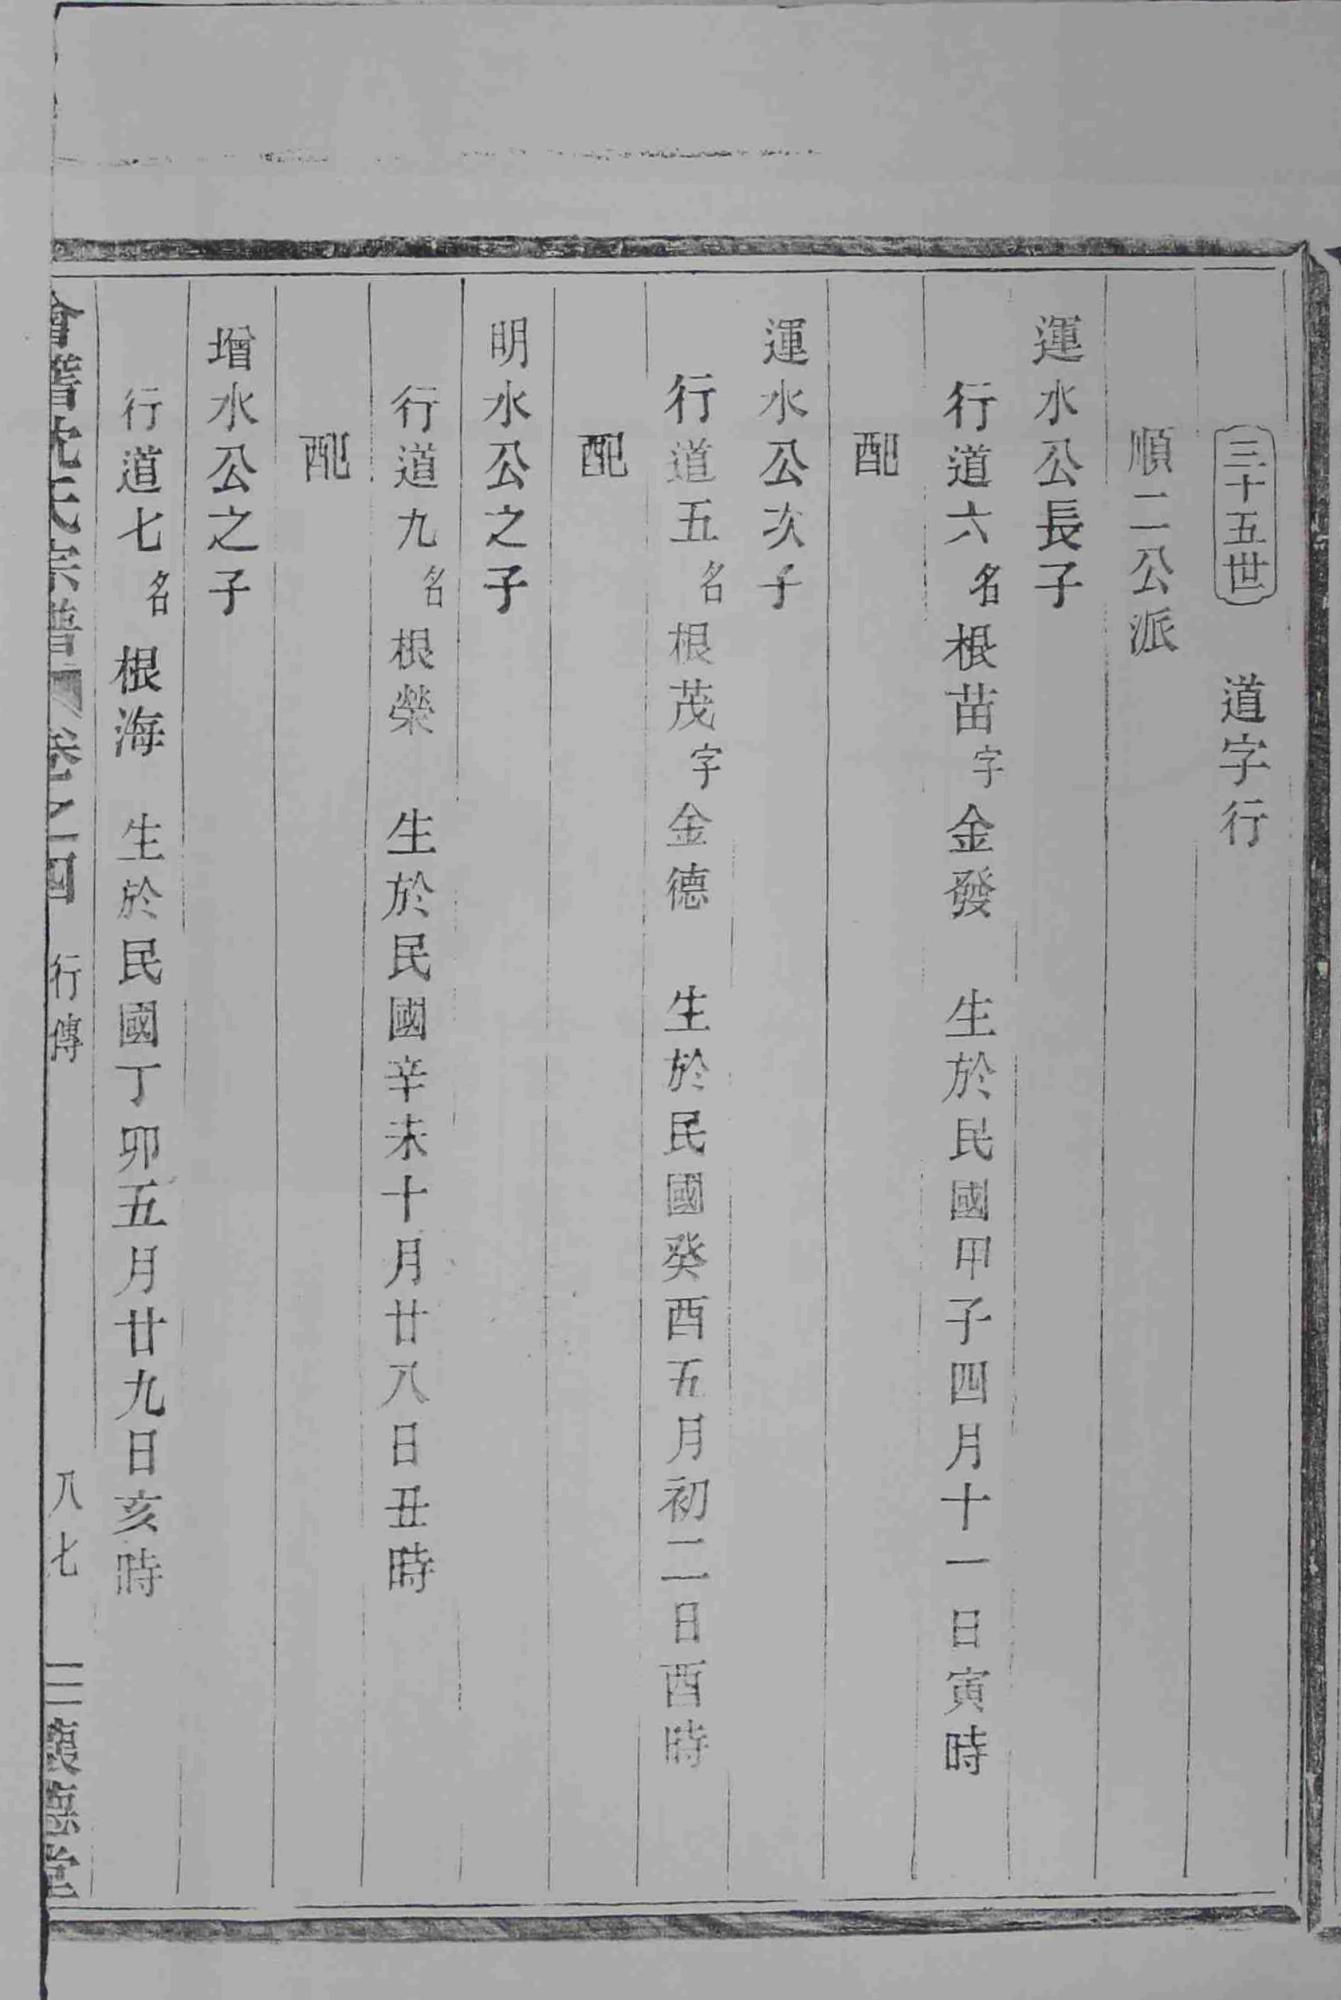 三十五世　道字行
順二公派
運水公長子
行道六名根苗字金發　生於民國甲子四月十一日寅時
配
運水公次子
行道五名根茂字金德　生於民國癸酉五月初二日酉時
配
明水公之子
行道九名根榮　生於民國辛未十月廿八日丑時
配
增水公之子
行道七名根海　生於民國丁卯五月廿九日亥時
會稽沈氏宗譜　卷之四　行傳　八七　三懷德堂